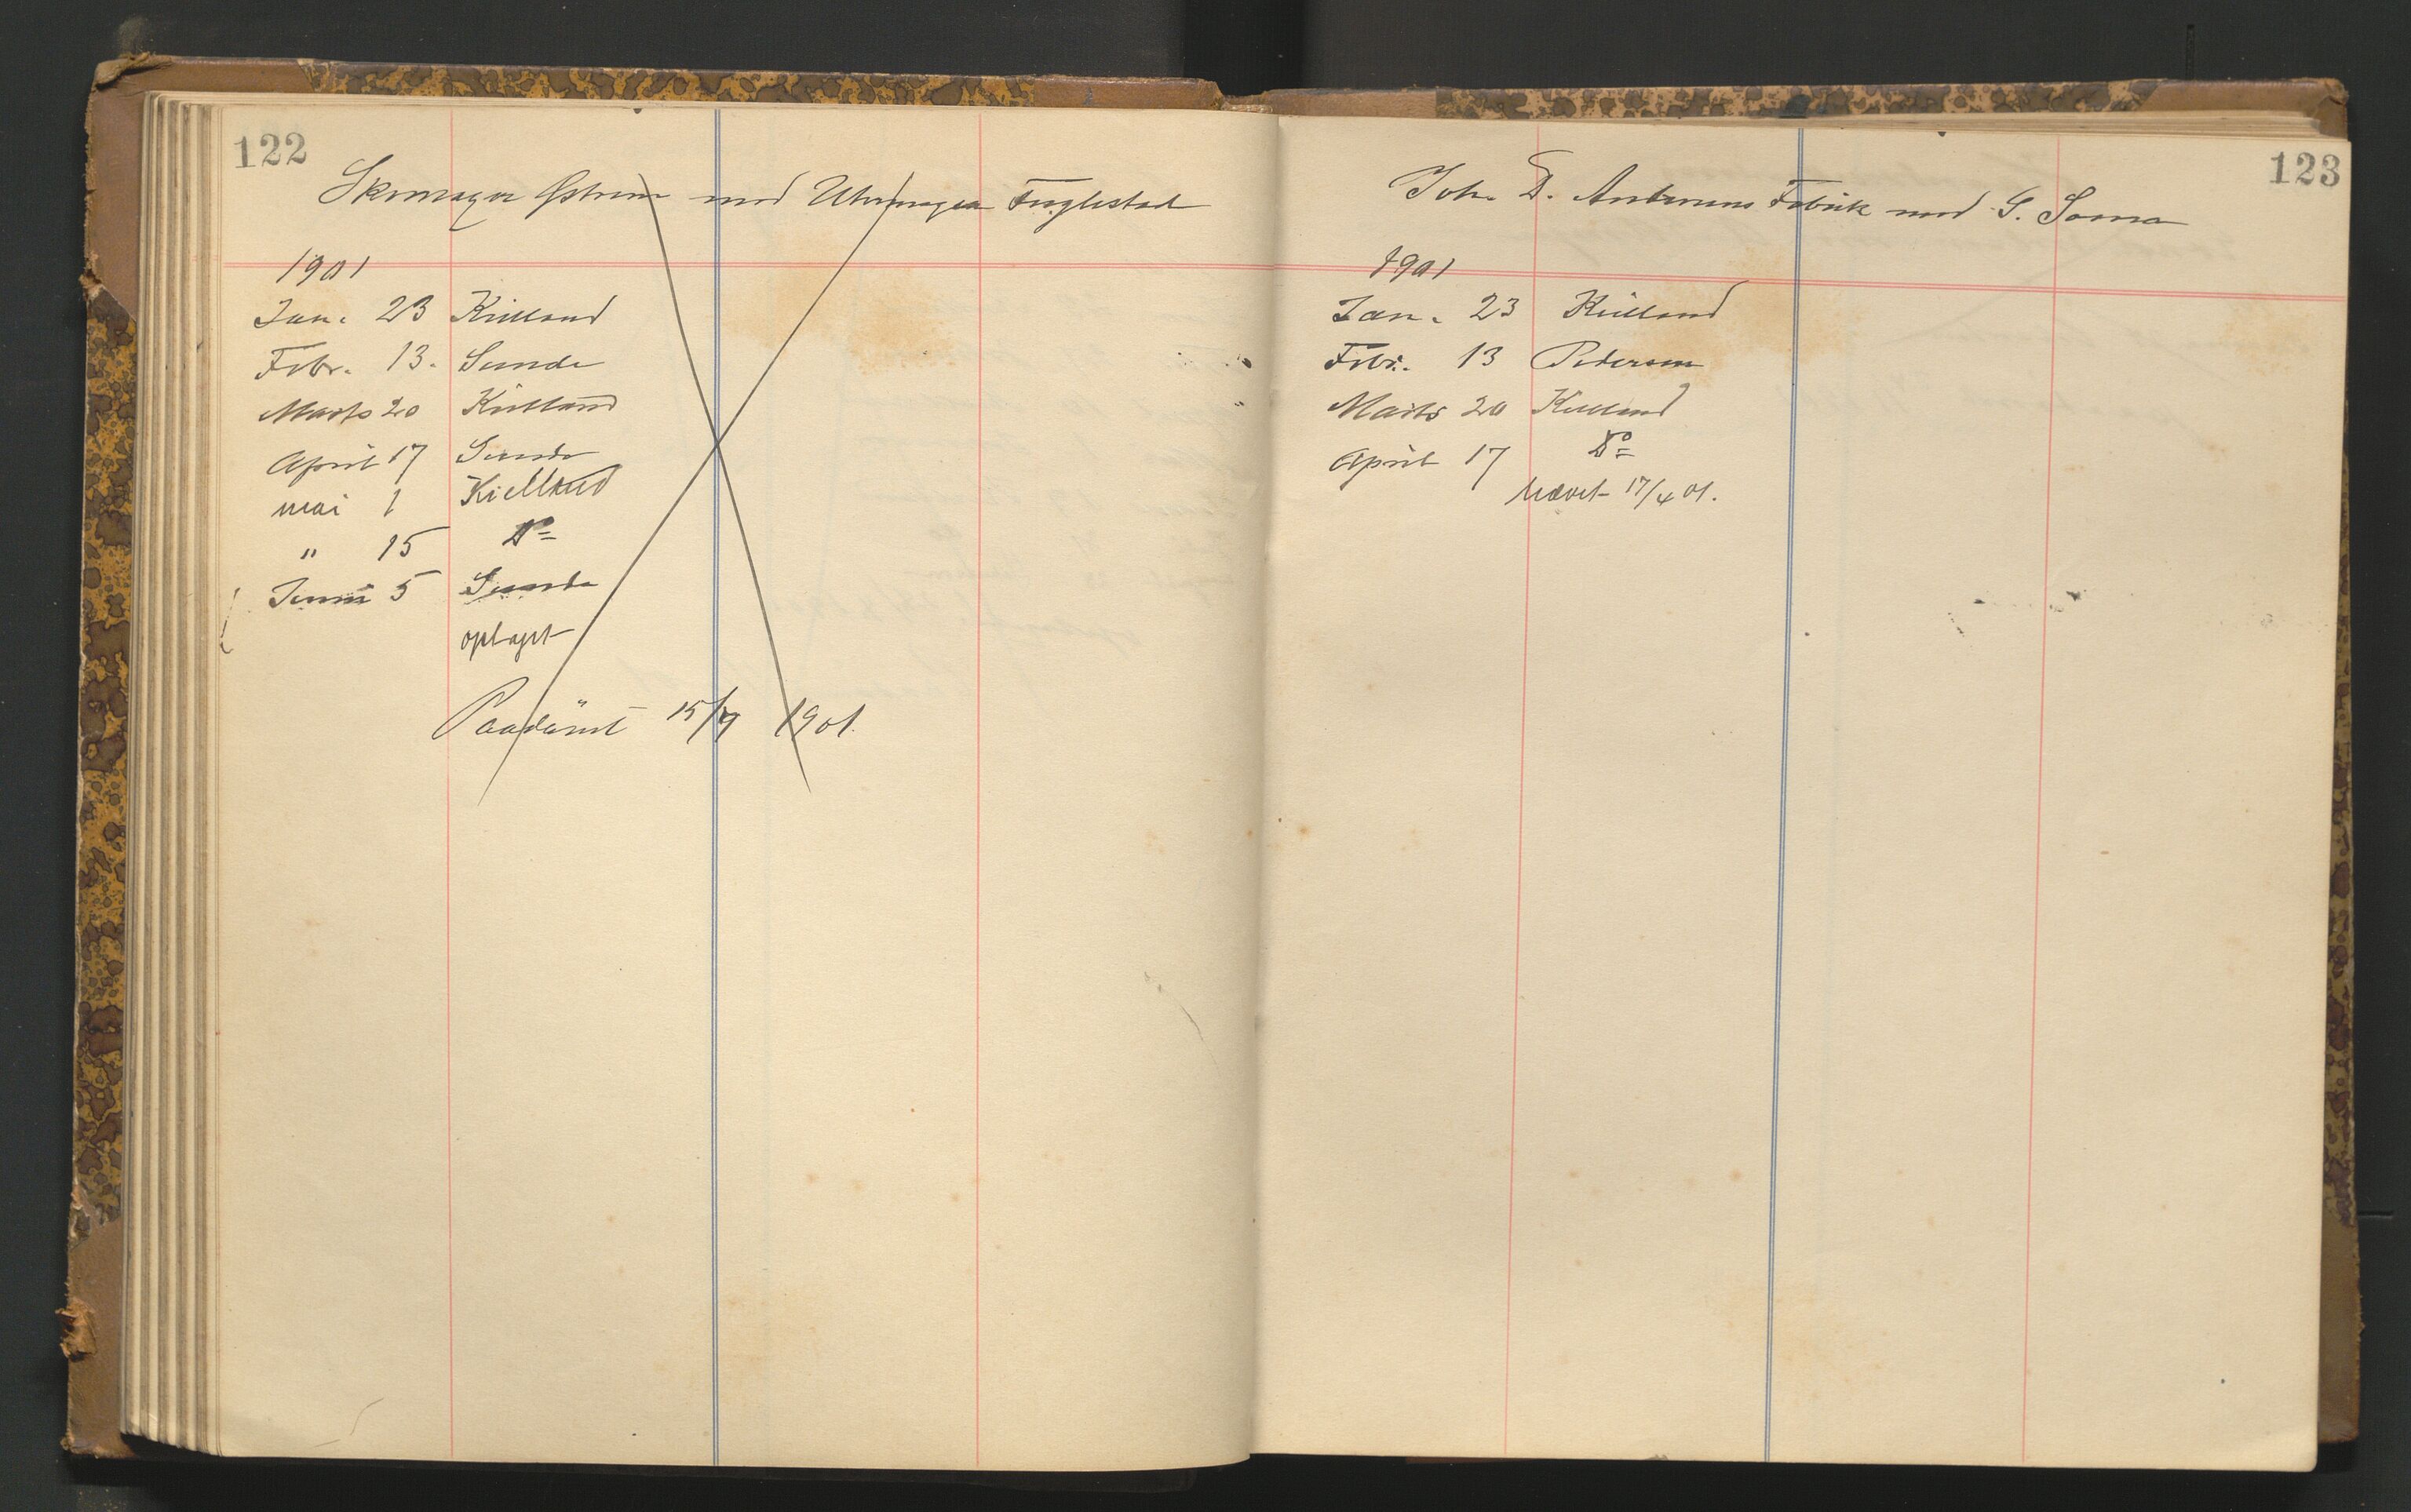 122
Skomager Østrem mod Uhrmager Fuglestad
1901
Jan. 23 Kielland
Febr. 13. Sunde
Marts 20 Kielland
April 17 Sunde
mai 1 Kielland
" 15 Do
Juni 5 Sunde
optaget
Paadömt 15/ 1901.
123
Joh. D. Fabrik mod G. Soma
1901
Jan. 23 Kielland
Febr. 13 Pedersen
Marts 20 Kielland
April 17 Do
hævet 17/4 01.